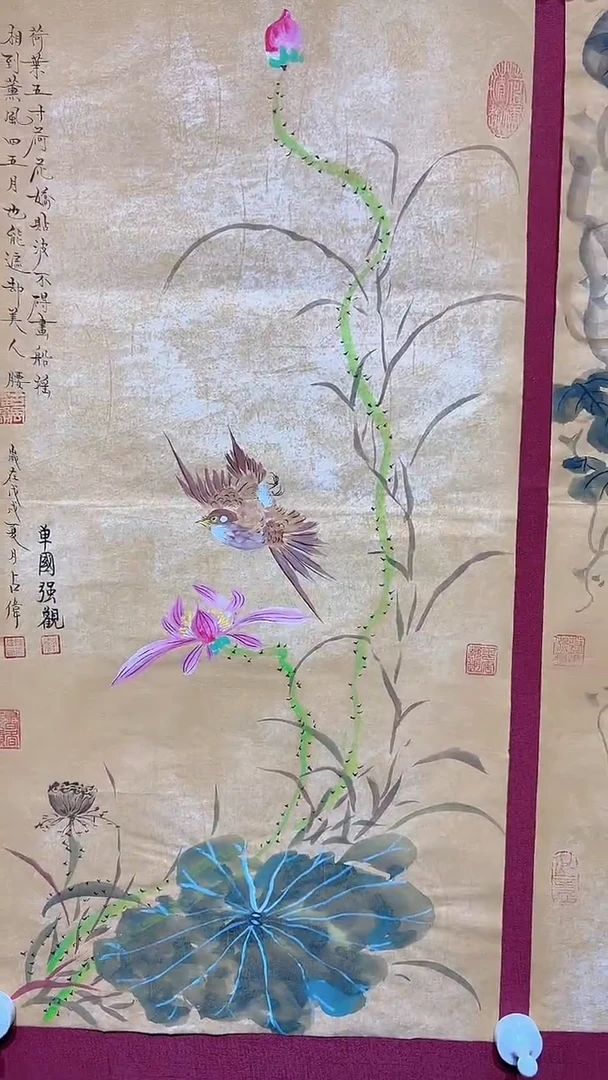 荷葉五寸荷花嬌貼波不碍畫船搖
相到薰風四五月也能遮却美人腰
歲在戊戌夏月占偉
單國强觀